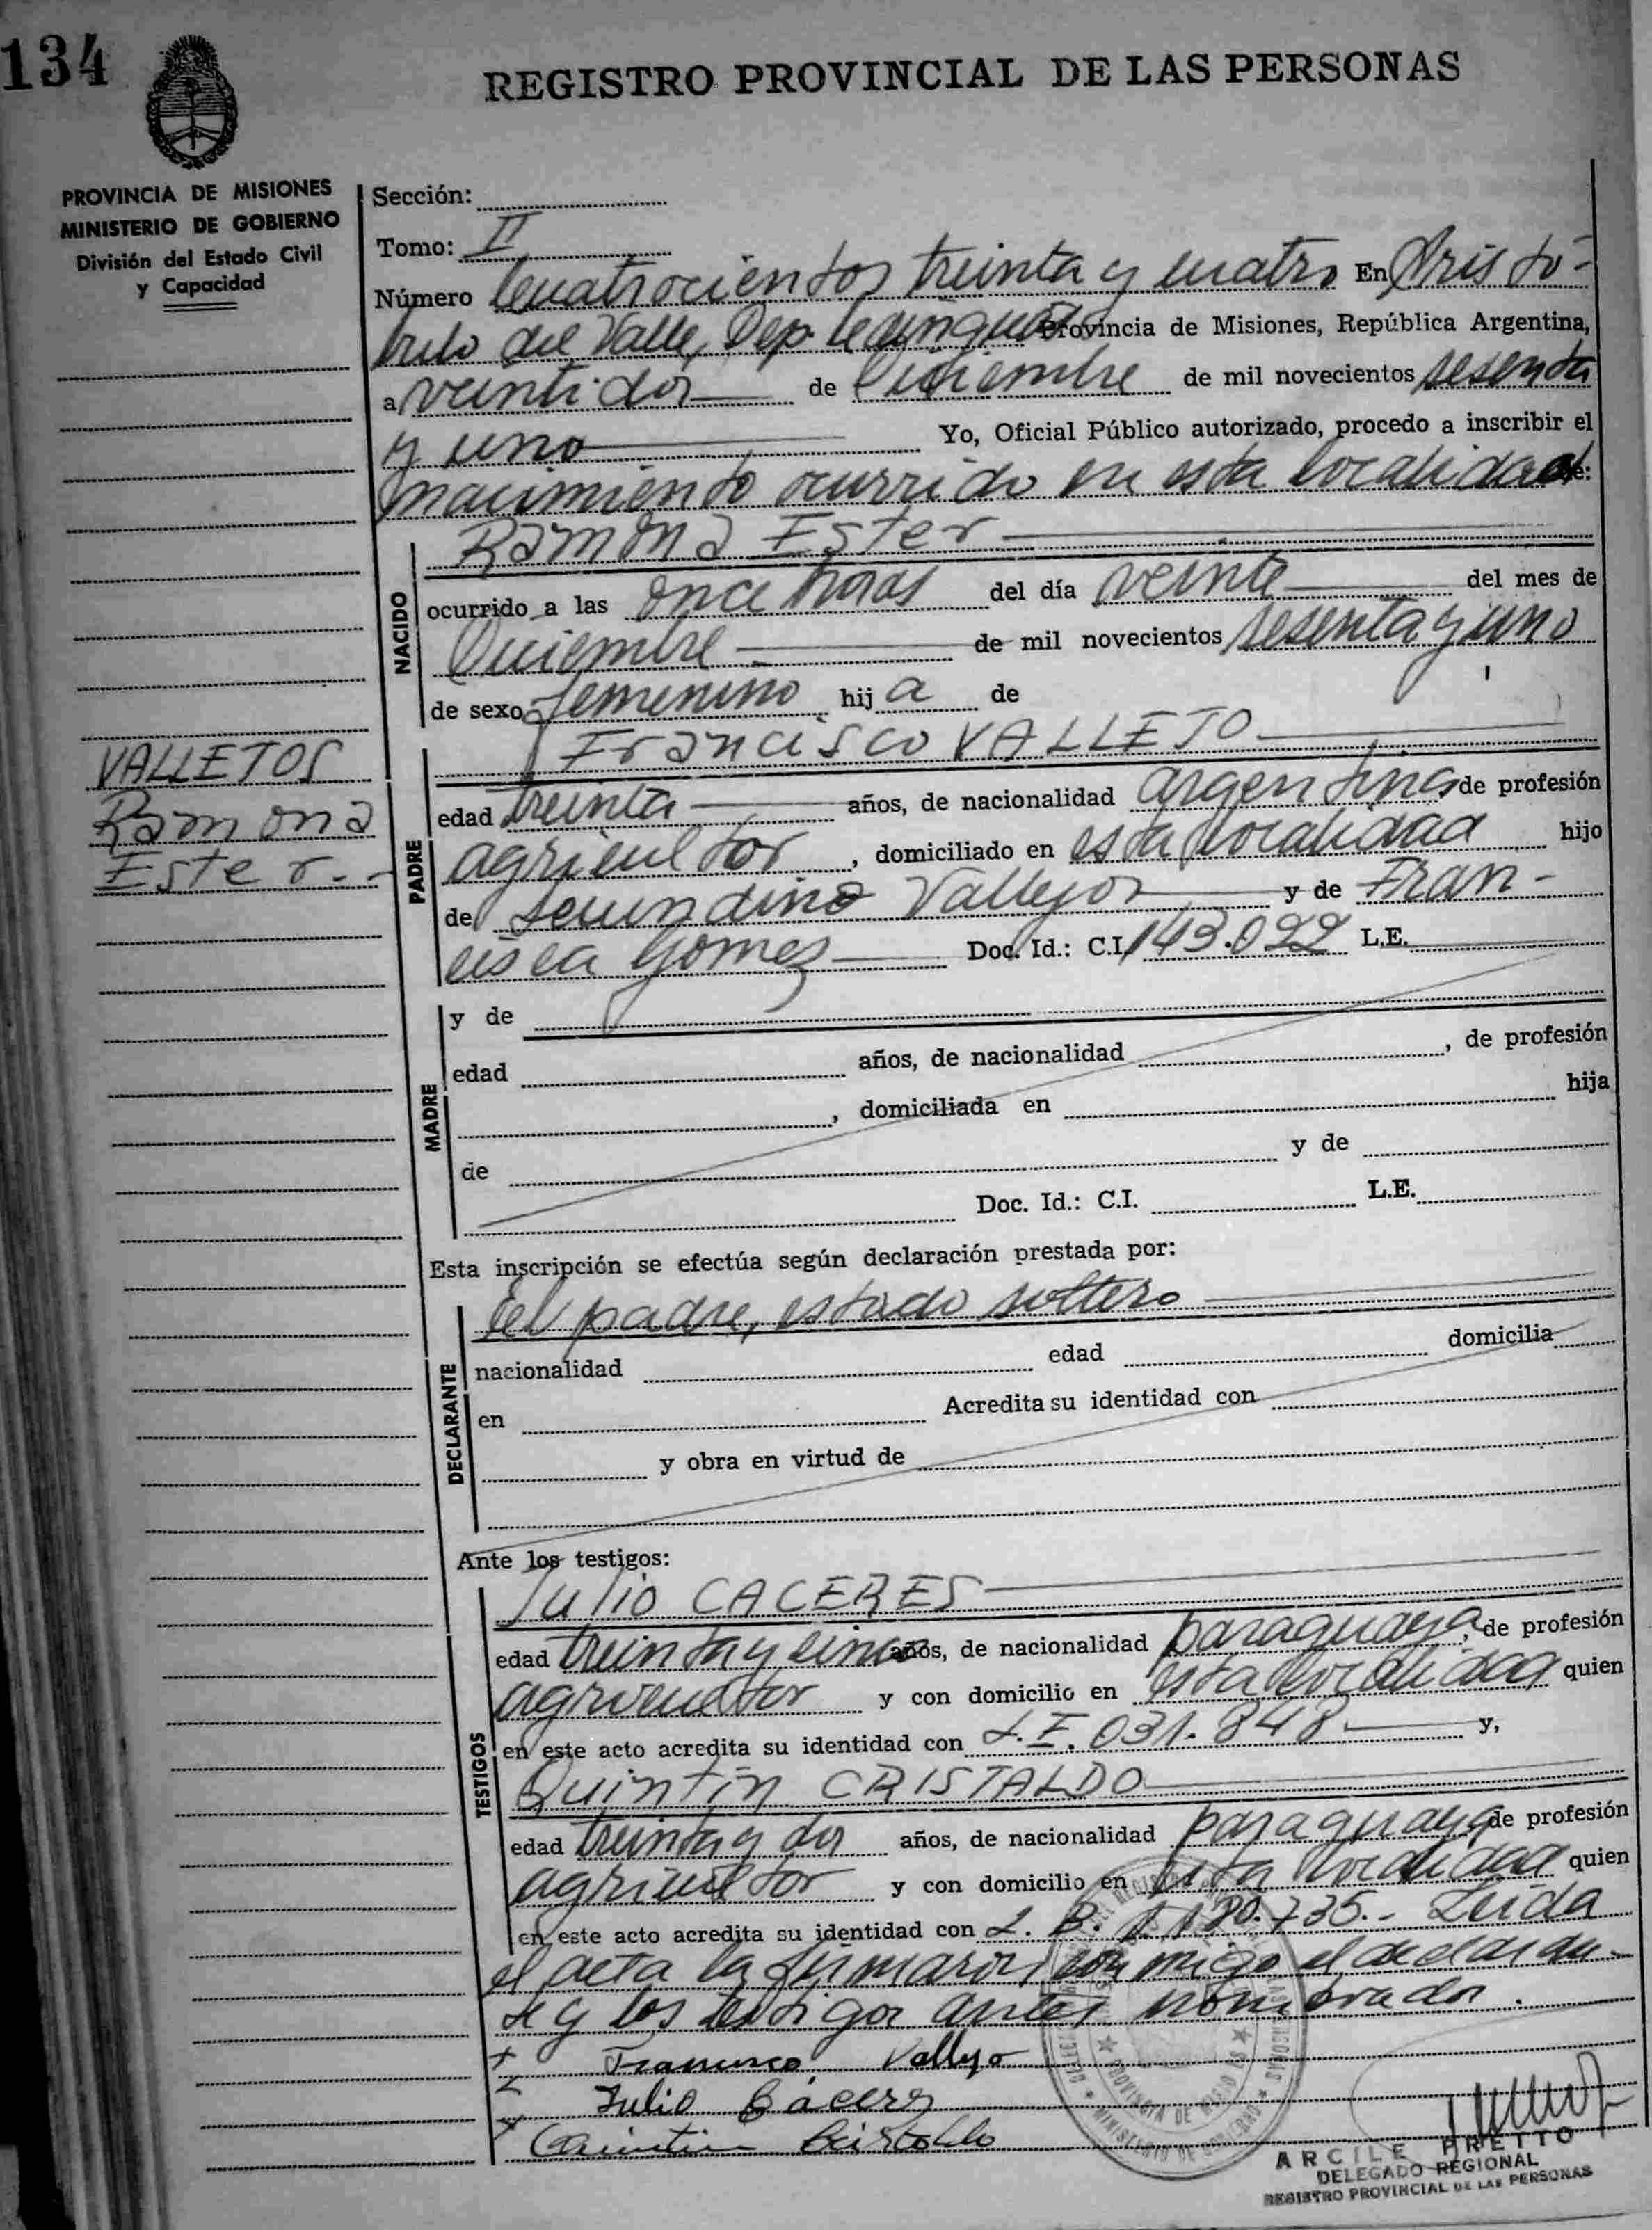 134
REGISTRO PROVINCIAL DE LAS PERSONAS
PROVINCIA DE MISIONES
MINISTERIO DE GOBIERNO
División del Estado Civil
y Capacidad
Sección:
Tomo: II
Número Cuatrocientos treinta y cuatro En Aristó-
bulo del Valle, Dep. Cainguás Provincia de Misiones, República Argentina,
a veintidos de Diciembre de mil novecientos sesenta
y uno Yo, Oficial Público autorizado, procedo a inscribir el
nacimiento ocurrido en esta localidad de:
NACIDO
Ramona Ester
ocurrido a las once horas del día veinte del mes de
Diciembre de mil novecientos sesenta y uno
de sexo femenino hija de
VALLEJOS
Ramona
Ester.-
PADRE
Francisco VALLEJO
edad treinta años, de nacionalidad argentina de profesión
agricultor, domiciliado en esta localidad hijo
de Secundino Vallejos y de Fran-
cisca Gomez Doc. Id.: C.I. 143.022 L.E.
MADRE
y de
edad años, de nacionalidad , de profesión
, domiciliada en hija
de y de
Doc. Id.: C.I. L.E.
Esta inscripción se efectúa según declaración prestada por:
DECLARANTE
El padre, estado soltero
nacionalidad edad domicilia
en Acredita su identidad con
y obra en virtud de
Ante los testigos:
TESTIGOS
Julio CACERES
edad treinta y cinco años, de nacionalidad paraguaya, de profesión
agricultor y con domicilio en esta localidad quien
en este acto acredita su identidad con 031.848 y,
Quintín CRISTALDO
edad treinta y dos años, de nacionalidad paraguaya de profesión
agricultor y con domicilio en esta localidad quien
en este acto acredita su identidad con Leida
el acta la firmaron conmigo el declaran-
te y los testigos antes nombrados.
Francisco Vallejo
Julio Cáceres
Quintin Cristaldo
PROVINCIA DE MISIONES
MINISTERIO DE GOBIERNO
ARCILE PRETTO
DELEGADO REGIONAL
REGISTRO PROVINCIAL DE LAS PERSONAS